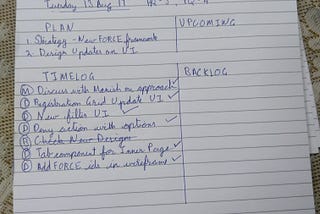 Tuesday, 15 Aug 17
PLAN
UPCOMING
1. Strategy - New FORCE framework
2. Design Updates on UI.
TIMELOG
BACKLOG
M Discuss with Manish on approach ✓
D Registration Grid Update UI ✓
D New filter UI ✓
D Deny action with options ✓
R Check New Design
D Tab component for Inner Page ✓
D Add FORCE ids in wireframe ✓